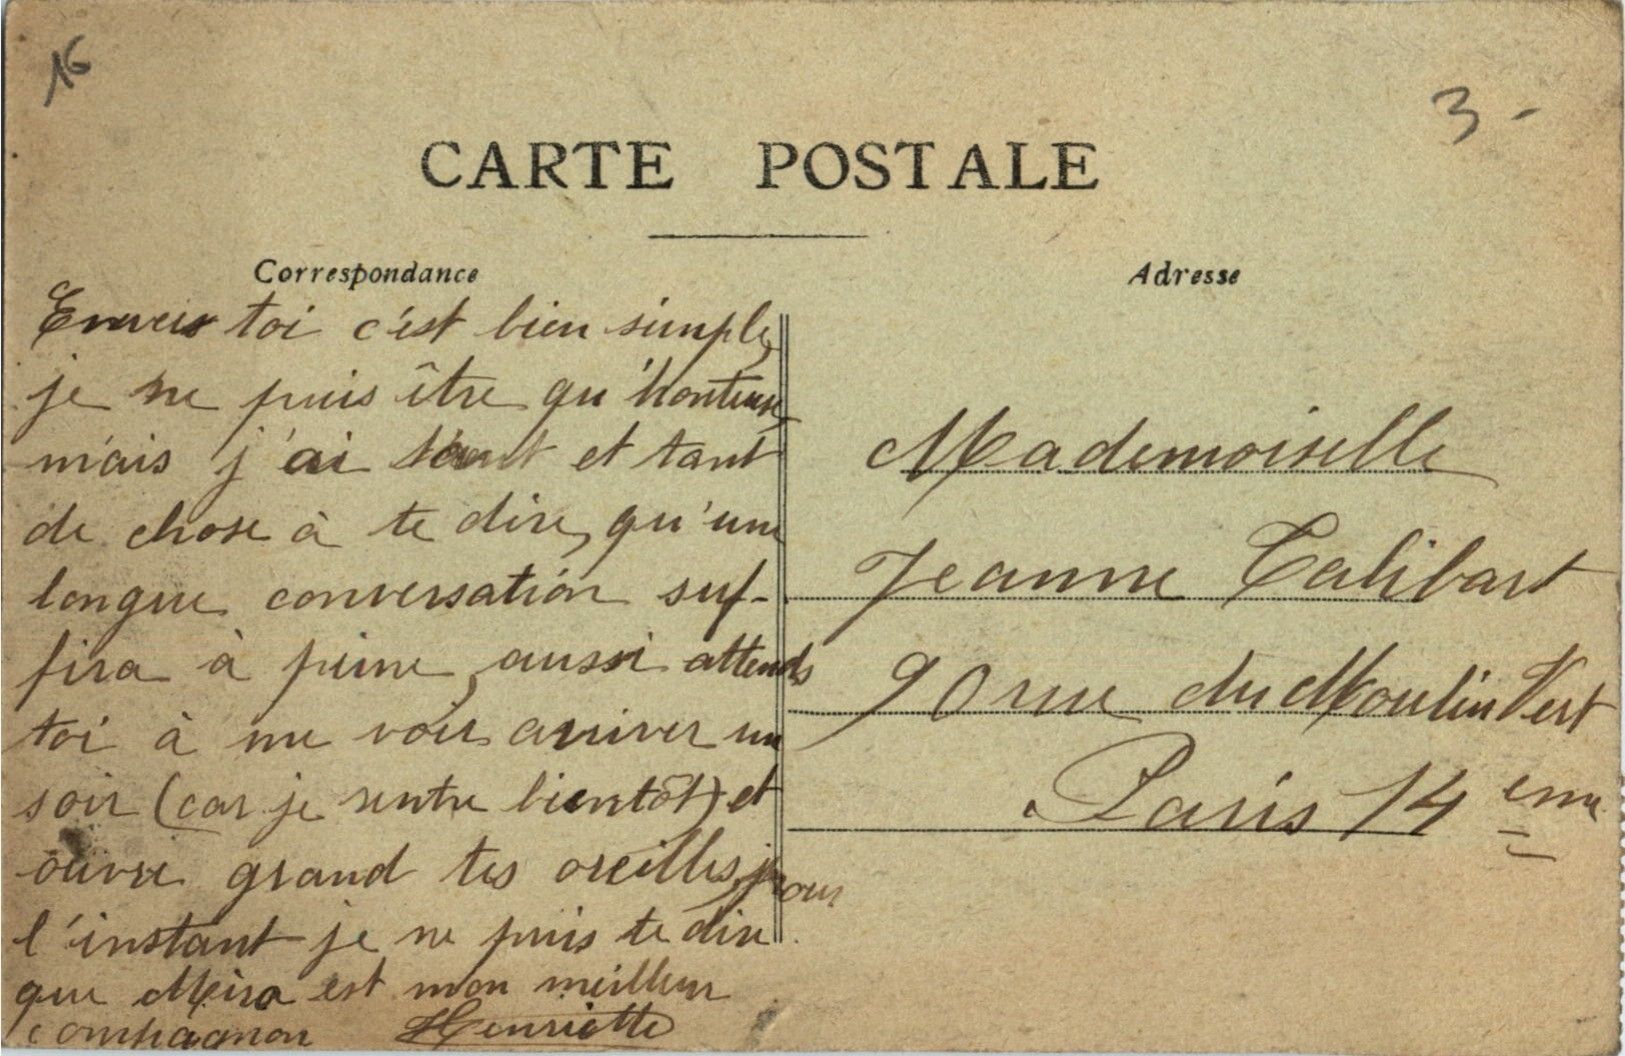 16
3 -
CARTE POSTALE
Correspondance
Adresse
Envers toi c'est bien simple,
je ne puis être qu'honteuse,
mais j'ai tant et tant
de chose à te dire, qu'une
longue conversation suf-
fira à peine, aussi attends
toi à me voir arriver un
soir (car je rentre bientôt) et
ouvre grand tes oreilles, pour
l'instant je ne puis te dire
que Méra est mon meilleur
compagnon Henriette
Mademoiselle
Jeanne Talibart
90 rue du Moulin Vert
Paris 14 eme